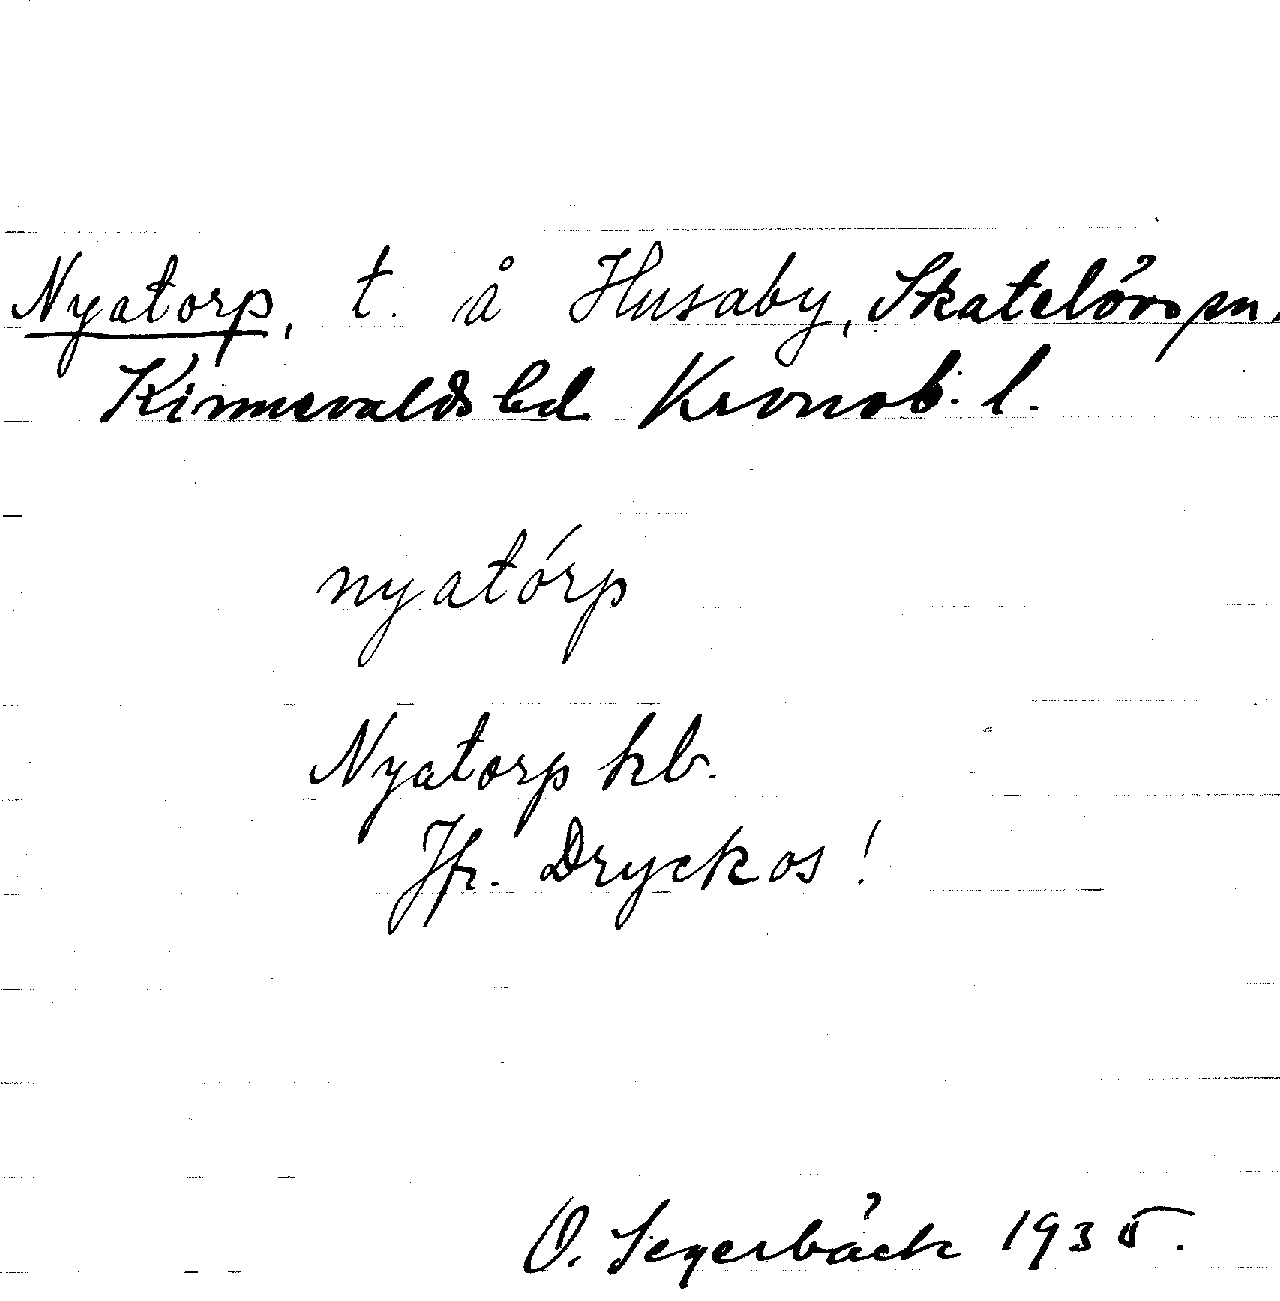 Nyatorp, t. å Husaby, Skatelövs sn.
Kinnevalds hd Kronob. l.
nyatórp
Nyatorp kb.
Jfr. Dryckos!
O. Segerbäck 1935.